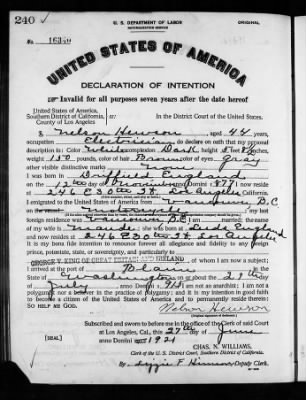 240
U. S. DEPARTMENT OF LABOR
NATURALIZATION SERVICE
ORIGINAL
No. 16340
UNITED STATES OF AMERICA
DECLARATION OF INTENTION
Invalid for all purposes seven years after the date hereof
United States of America,
Southern District of California, ss:
County of Los Angeles
In the District Court of the United States.
I, Nelson Hewson, aged 44 years,
occupation Electrician, do declare on oath that my personal
description is: Color White, complexion Dark, height 5 feet inches,
weight 150 pounds, color of hair Brown, color of eyes Gray
other visible distinctive marks None
I was born in Driffield England
on the 12th day of November, anno Domini 1877; I now reside
at 246 E 30th St. Los Angeles, California.
I emigrated to the United States of America from Vancouver B.C.
on the vessel; my last
foreign residence was Vancouver B.C. I am married; the name
of my wife is Maude; she was born in Leeds England
and now resides at 246 E 30th St Los Angeles
It is my bona fide intention to renounce forever all allegiance and fidelity to any foreign
prince, potentate, state, or sovereignty, and particularly to
GEORGE V, KING OF GREAT BRITAIN AND IRELAND, of whom I am now a subject;
I arrived at the port of Blaine, in the
State of Washington, on or about the 21st day
of July, anno Domini 191; I am not an anarchist; I am not a
polygamist nor a believer in the practice of polygamy; and it is my intention in good faith
to become a citizen of the United States of America and to permanently reside therein:
SO HELP ME GOD.
Nelson Hewson
(Original signature of declarant.)
Subscribed and sworn to before me in the office of the Clerk of said Court
at Los Angeles, Cal., this 27th day of June
[SEAL] anno Domini 1921
CHAS. N. WILLIAMS,
Clerk of the U. S. District Court, Southern District of California.
By, Deputy Clerk.